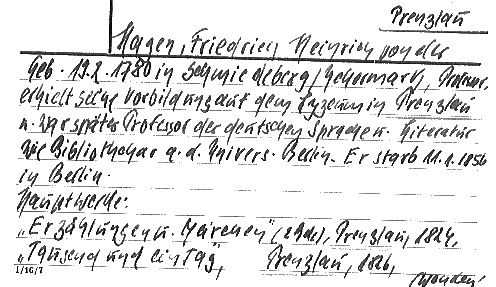 Prenzlau
Hagen, Friedrich Heinrich von der
Geb. 19.2.1780 in Schmiedeberg/Uckermark, Professor,
erhielt seine Vorbildung auf dem Lyzeum in Prenzlau
u. war später Professor der deutschen Sprache u. Literatur
wie Bibliothekar a. d. Univers. Berlin. Er starb 11.1.1856
in Berlin.
Hauptwerke:
„Erzählungen u. Märchen" (2 Bde), Prenzlau, 1824,
„Tausend und ein Tag", Prenzlau, 1826,
1/16/7
wenden!